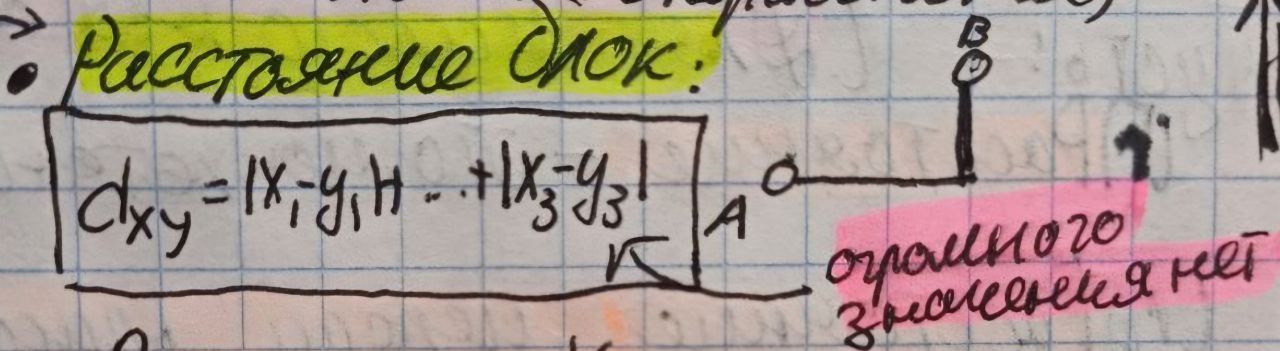 Расстояние блок:
B
dxy = |x₁-y₁|+...+|x₃-y₃|
A
огромного
значения нет